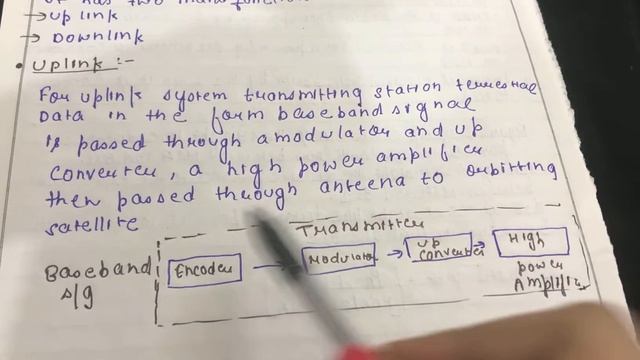 It has two main function
→ Up link
→ Downlink
• Uplink :-
For uplink system transmitting station terrestrial
Data in the form baseband signal
is passed through a modulator and up
converter, a high power amplifier
then passed through anteena to orbitting
satellite
Transmitter
Baseband s/g
Encoder → Modulator → Up converter → High power Amplifier